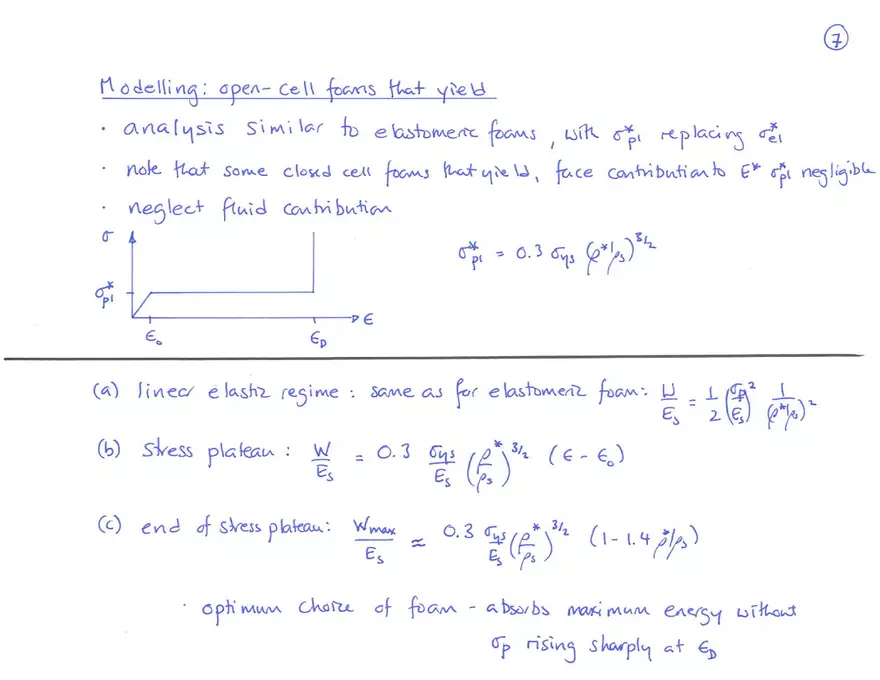 7
Modelling: open-cell foams that yield
· analysis similar to elastomeric foams, with σ*pl replacing σ*el
· note that some closed cell foams that yield, face contribution to E* σ*pl negligible
· neglect fluid contribution
σ
σ*pl = 0.3 σys (ρ*/ρs)^3/2
σ*pl
ε
ε₀ εD
(a) linear elastic regime: same as for elastomeric foam: W/Es = 1/2 (σp/Es)² 1/(ρ*/ρs)²
(b) stress plateau: W/Es = 0.3 σys/Es (ρ*/ρs)^3/2 (ε - ε₀)
(c) end of stress plateau: Wmax/Es ≈ 0.3 σys/Es (ρ*/ρs)^3/2 (1-1.4 ρ*/ρs)
· optimum choice of foam - absorbs maximum energy without
σp rising sharply at εD